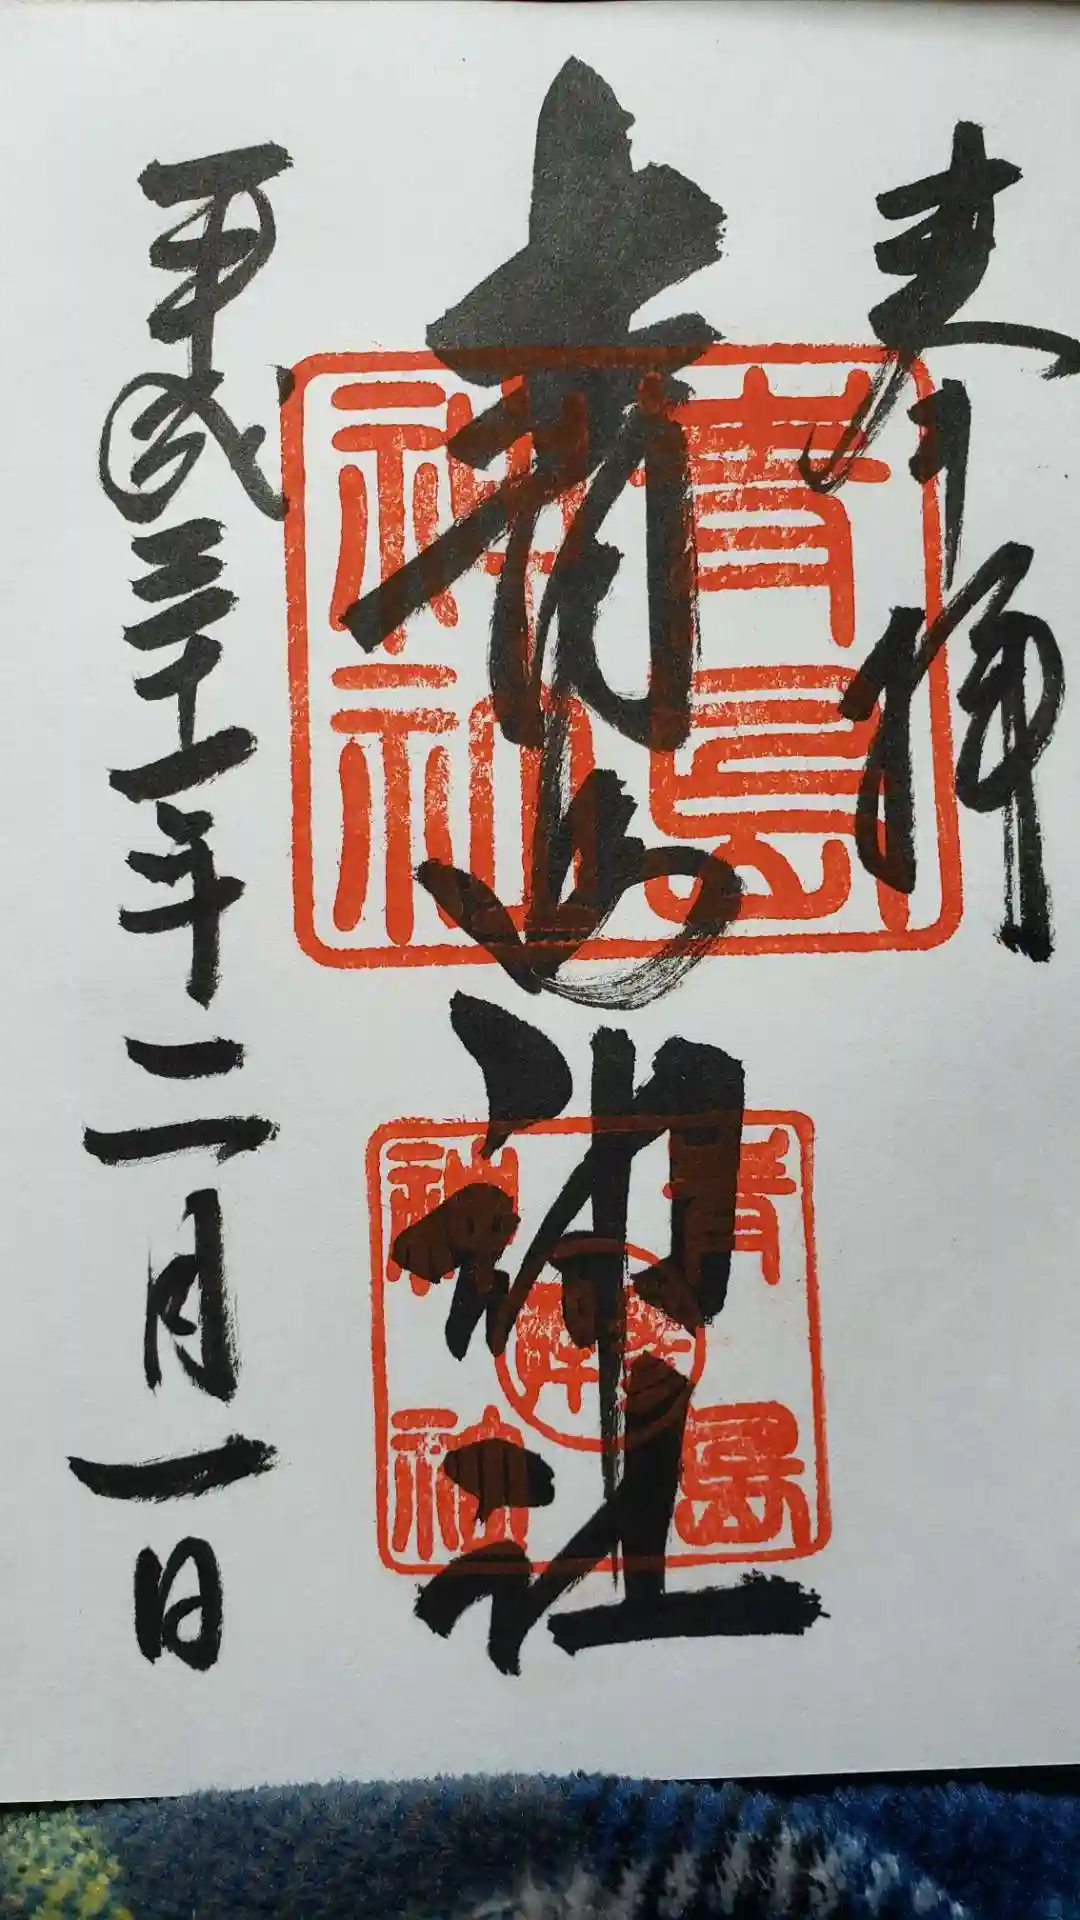 奉拝
青島神社
青島
神社
青島
神社
平成三十一年二月一日